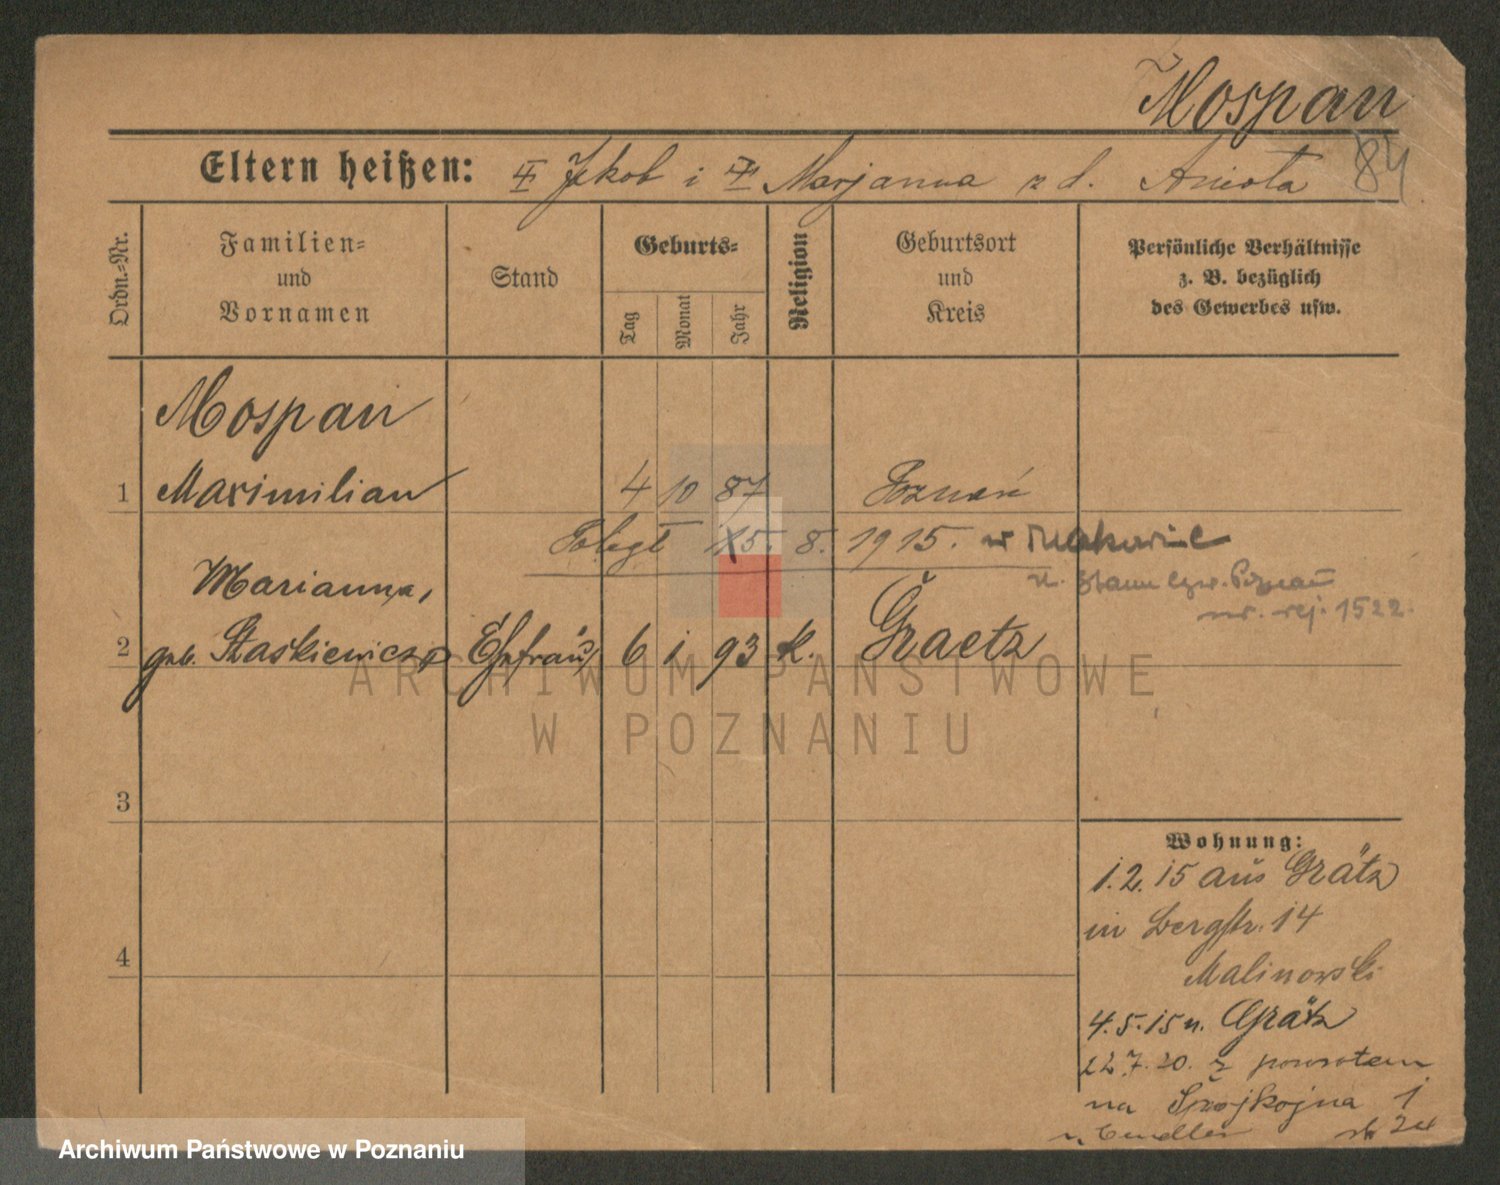 Mospan
Eltern heißen: Jakob i Marjanna z d. Anioła 84
Ordn.=Nr.
Familien=
und
Vornamen
Stand
Geburts=
Tag
Monat
Jahr
Religion
Geburtsort
und
Kreis
Persönliche Verhältnisse
z. B. bezüglich
des Gewerbes usw.
Mospan
1 Maximilian 4 10 87 Poznań
Poległ 15. 8. 1915. w
nr. rej. 1522.
Marianna,
2 geb. Staśkiewicz Ehefrau 6 1 93 k. Graetz
ARCHIWUM PAŃSTWOWE
W POZNANIU
3
4
Wohnung:
1.2.15 aus Grätz
in Bergstr. 14
Malinowski
4.5.15 n. Grätz
22.7.20. z powrotem
na Spokojna 1
Archiwum Państwowe w Poznaniu